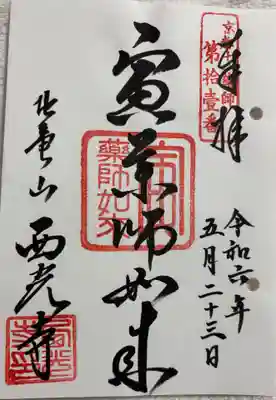 京都十二薬師
第拾壹番
奉拝
令和六年
五月二十三日
寅薬師如来
寅
薬師如来
西光寺